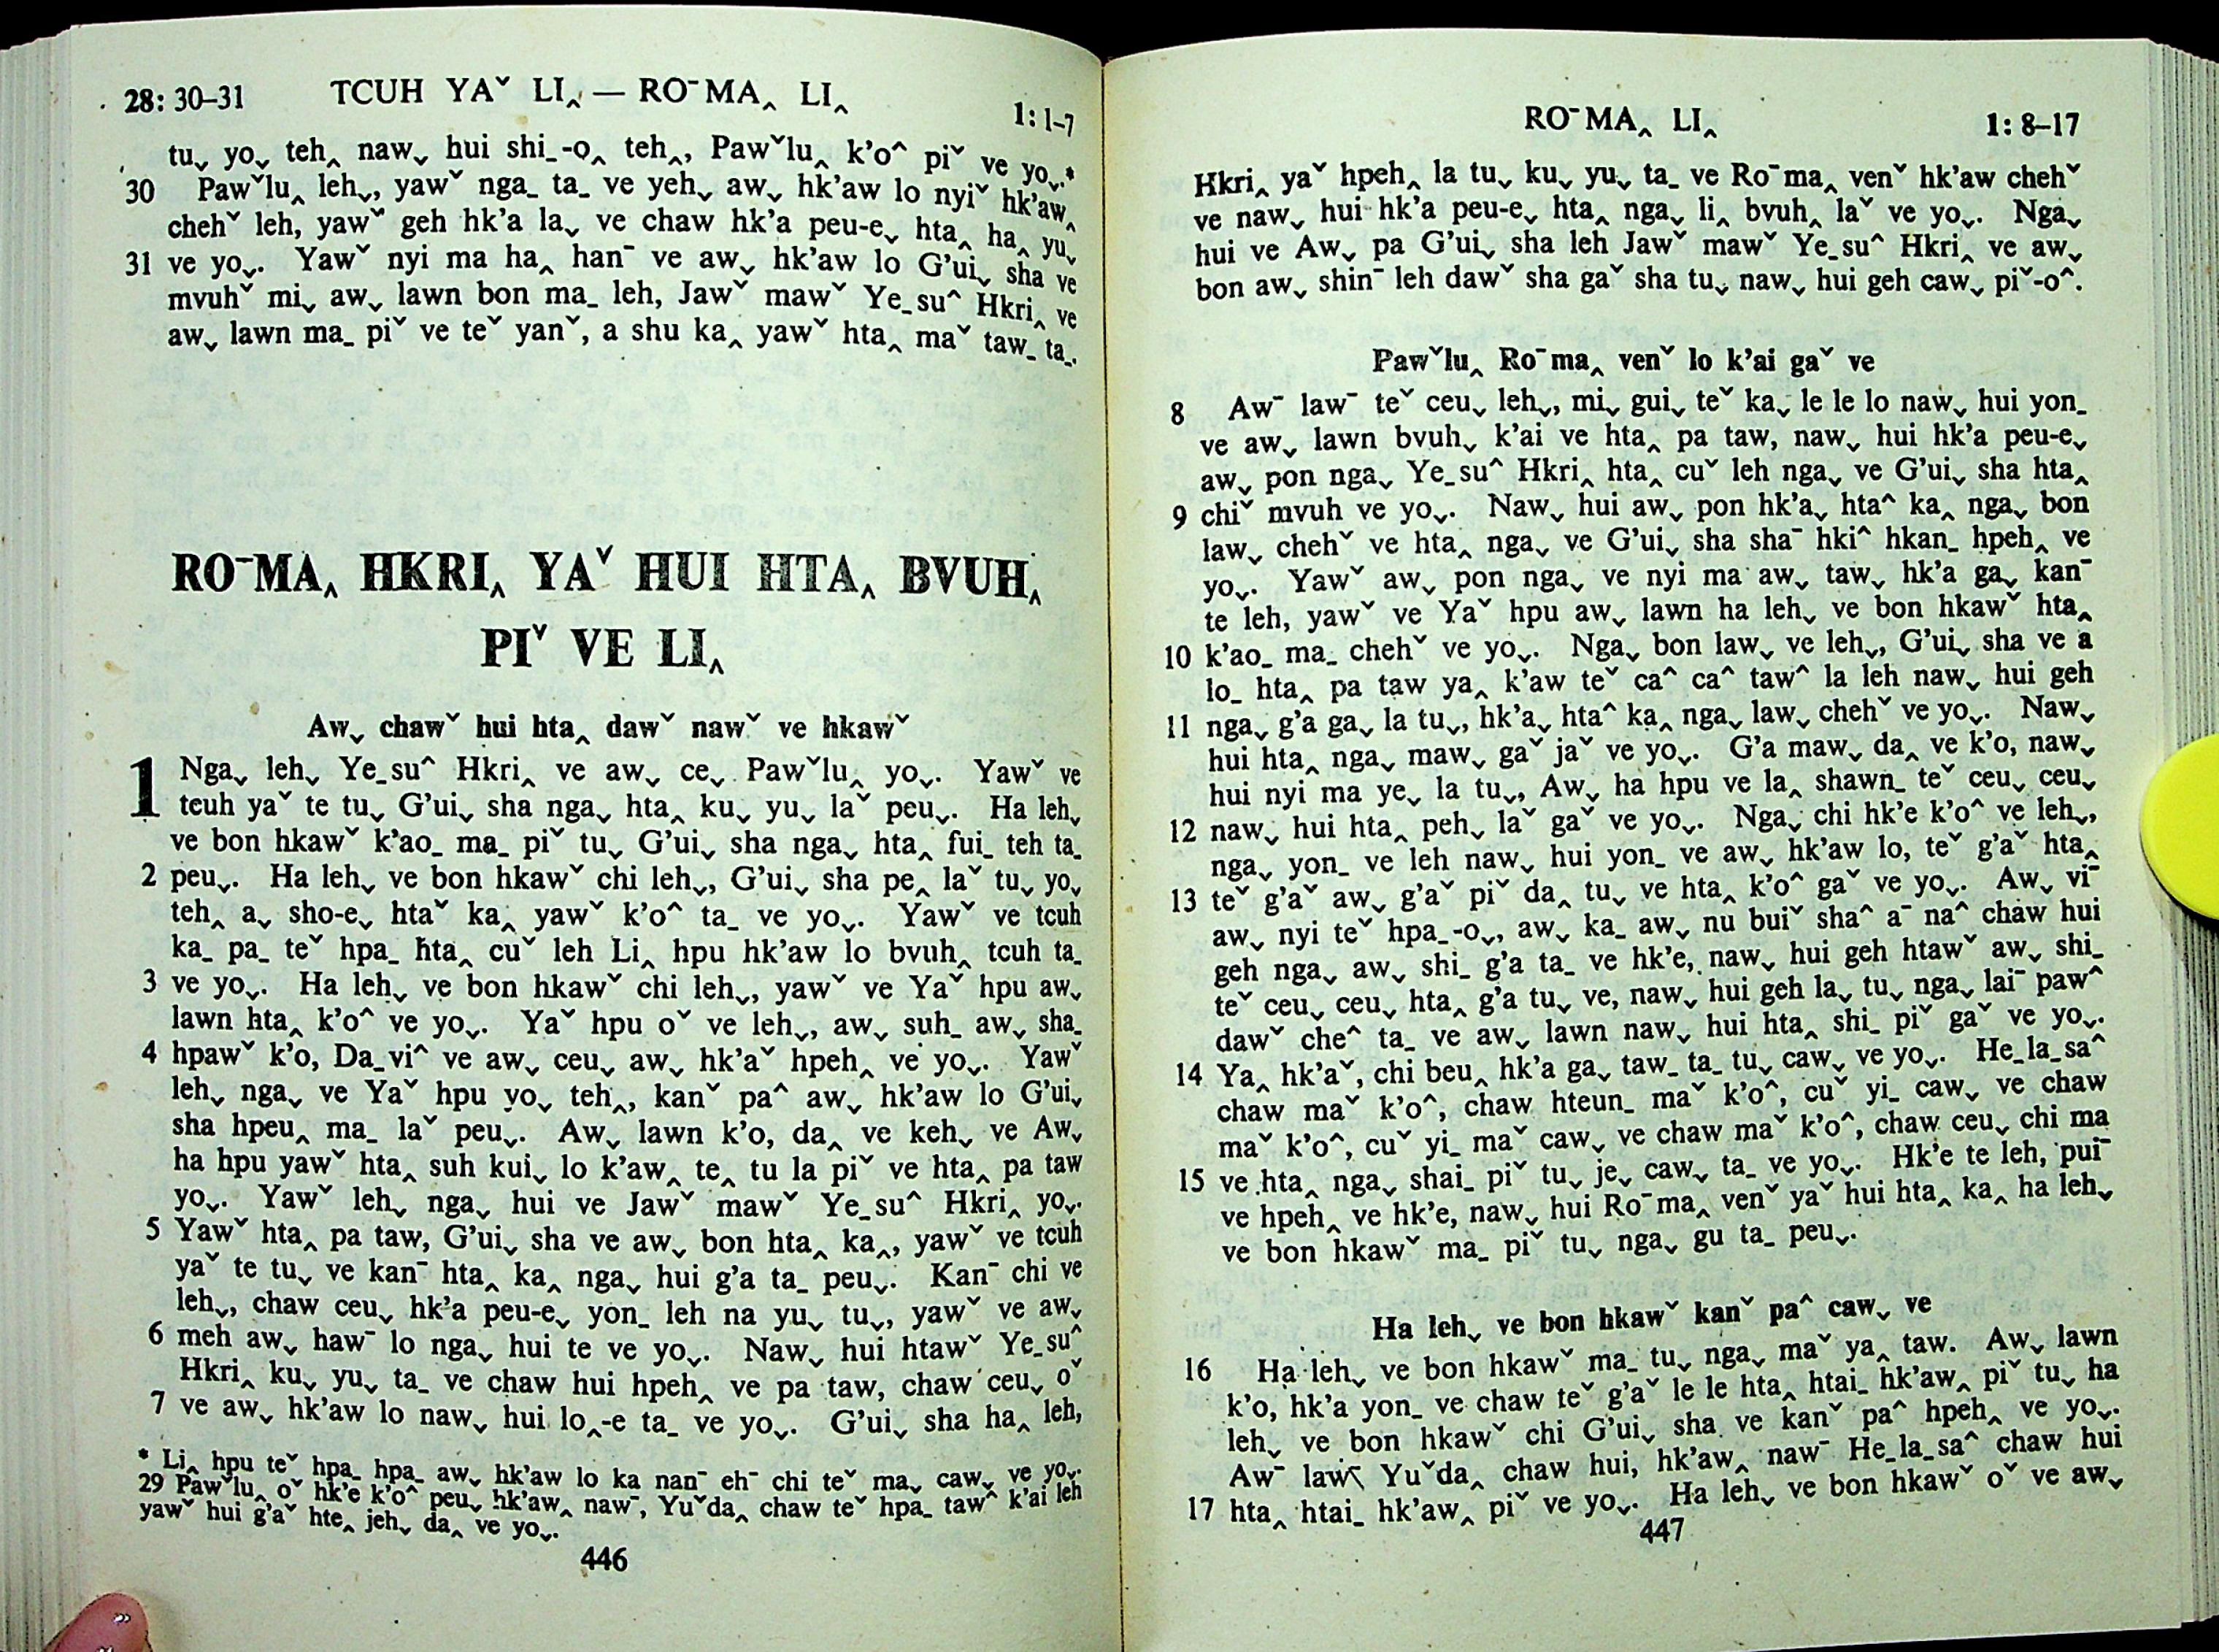 28: 30–31 TCUH YAˇ LI‸ — ROˉMA‸ LI‸ 1: 1–7
tuˬ yoˬ teh‸ nawˬ hui shi_-o‸ teh‸, Pawˇlu‸ k’o^ piˇ ve yoˬ.*
30 Pawˇlu‸ lehˬ, yawˇ nga_ ta_ ve yehˬ awˬ hk’aw lo nyiˇ hk’aw‸
chehˇ leh, yawˇ geh hk’a laˬ ve chaw hk’a peu-eˬ hta‸ ha‸ yuˬ
31 ve yoˬ. Yawˇ nyi ma ha‸ hanˉ ve awˬ hk’aw lo G’uiˬ sha ve
mvuhˇ miˬ awˬ lawn bon ma_ leh, Jawˇ mawˇ Ye_su^ Hkri‸ ve
awˬ lawn ma_ piˇ ve teˇ yanˇ, a shu ka‸ yawˇ hta‸ maˇ taw_ ta_.
ROˉMA‸ HKRI‸ YAˇ HUI HTA‸ BVUH‸
PIˇ VE LI‸
Awˬ chawˇ hui hta‸ dawˇ nawˇ ve hkawˇ
1 Ngaˬ lehˬ Ye_su^ Hkri‸ ve awˬ ceˬ Pawˇlu‸ yoˬ. Yawˇ ve
tcuh yaˇ te tuˬ G’uiˬ sha ngaˬ hta‸ kuˬ yuˬ laˇ peuˬ. Ha lehˬ
ve bon hkawˇ k’ao_ ma_ piˇ tuˬ G’uiˬ sha ngaˬ hta‸ fui_ teh ta_
2 peuˬ. Ha lehˬ ve bon hkawˇ chi lehˬ, G’uiˬ sha pe‸ laˇ tuˬ yoˬ
teh‸ aˬ sho-eˬ htaˇ ka‸ yawˇ k’o^ ta_ ve yoˬ. Yawˇ ve tcuh
ka_ pa_ teˇ hpa_ hta‸ cuˇ leh Li‸ hpu hk’aw lo bvuh‸ tcuh ta_
3 ve yoˬ. Ha lehˬ ve bon hkawˇ chi lehˬ, yawˇ ve Yaˇ hpu awˬ
lawn hta‸ k’o^ ve yoˬ. Yaˇ hpu oˇ ve lehˬ, awˬ suh_ awˬ sha_
4 hpawˇ k’o, Da_vi^ ve awˬ ceuˬ awˬ hk’aˇ hpeh‸ ve yoˬ. Yawˇ
lehˬ ngaˬ ve Yaˇ hpu yoˬ teh‸, kanˇ pa^ awˬ hk’aw lo G’uiˬ
sha hpeu‸ ma_ laˇ peuˬ. Awˬ lawn k’o, da‸ ve kehˬ ve Awˬ
ha hpu yawˇ hta‸ suh kuiˬ lo k’aw‸ te‸ tu la piˇ ve hta‸ pa taw
yoˬ. Yawˇ lehˬ ngaˬ hui ve Jawˇ mawˇ Ye_su^ Hkri‸ yoˬ.
5 Yawˇ hta‸ pa taw, G’uiˬ sha ve awˬ bon hta‸ ka‸, yawˇ ve tcuh
yaˇ te tuˬ ve kanˉ hta‸ ka‸ ngaˬ hui g’a ta_ peuˬ. Kanˉ chi ve
lehˬ, chaw ceuˬ hk’a peu-eˬ yon_ leh na yuˬ tuˬ, yawˇ ve awˬ
6 meh awˬ hawˉ lo ngaˬ hui te ve yoˬ. Nawˬ hui htawˇ Ye_su^
Hkri‸ kuˬ yuˬ ta_ ve chaw hui hpeh‸ ve pa taw, chaw ceuˬ oˇ
7 ve awˬ hk’aw lo nawˬ hui lo‸-e ta_ ve yoˬ. G’uiˬ sha ha‸ leh,
* Li‸ hpu teˇ hpa_ hpa_ awˬ hk’aw lo ka nanˉ ehˉ chi teˇ ma‸ cawˬ ve yoˬ.
29 Pawˇlu‸ oˇ hk’e k’o^ peuˬ hk’aw‸ nawˉ, Yuˇda‸ chaw teˇ hpa_ taw^ k’ai leh
yawˇ hui g’aˇ hte‸ jehˬ da‸ ve yoˬ.
446
ROˉMA‸ LI‸ 1: 8–17
Hkri‸ yaˇ hpeh‸ la tuˬ kuˬ yuˬ ta_ ve Roˉma‸ venˇ hk’aw chehˇ
ve nawˬ hui hk’a peu-eˬ hta‸ ngaˬ li‸ bvuh‸ laˇ ve yoˬ. Ngaˬ
hui ve Awˬ pa G’uiˬ sha leh Jawˇ mawˇ Ye_su^ Hkri‸ ve awˬ
bon awˬ shinˉ leh dawˇ sha gaˇ sha tuˬ nawˬ hui geh cawˬ piˇ-o^.
Pawˇlu‸ Roˉma‸ venˇ lo k’ai gaˇ ve
8 Awˉ lawˉ teˇ ceuˬ lehˬ, miˬ guiˬ teˇ kaˬ le le lo nawˬ hui yon_
ve awˬ lawn bvuhˬ k’ai ve hta‸ pa taw, nawˬ hui hk’a peu-eˬ
awˬ pon ngaˬ Ye_su^ Hkri‸ hta‸ cuˇ leh ngaˬ ve G’uiˬ sha hta‸
9 chiˇ mvuh ve yoˬ. Nawˬ hui awˬ pon hk’aˬ hta^ ka‸ ngaˬ bon
lawˬ chehˇ ve hta‸ ngaˬ ve G’uiˬ sha shaˉ hki^ hkan_ hpeh‸ ve
yoˬ. Yawˇ awˬ pon ngaˬ ve nyi ma awˬ tawˬ hk’a gaˬ kanˉ
te leh, yawˇ ve Yaˇ hpu awˬ lawn ha lehˬ ve bon hkawˇ hta‸
10 k’ao_ ma_ chehˇ ve yoˬ. Ngaˬ bon lawˬ ve lehˬ, G’uiˬ sha ve a
lo_ hta‸ pa taw ya‸ k’aw teˇ ca^ ca^ taw^ la leh nawˬ hui geh
11 ngaˬ g’a gaˬ la tuˬ, hk’aˬ hta^ ka‸ ngaˬ lawˬ chehˇ ve yoˬ. Nawˬ
hui hta‸ ngaˬ mawˬ gaˇ jaˇ ve yoˬ. G’a mawˬ da‸ ve k’o, nawˬ
hui nyi ma yeˬ la tuˬ, Awˬ ha hpu ve la‸ shawn_ teˇ ceuˬ ceuˬ
12 nawˬ hui hta‸ pehˬ laˇ gaˇ ve yoˬ. Ngaˬ chi hk’e k’o^ ve lehˬ,
ngaˬ yon_ ve leh nawˬ hui yon_ ve awˬ hk’aw lo, teˇ g’aˇ hta‸
13 teˇ g’aˇ awˬ g’aˇ piˇ da‸ tuˬ ve hta‸ k’o^ gaˇ ve yoˬ. Awˬ viˉ
awˬ nyi teˇ hpa_-oˬ, awˬ ka_ awˬ nu buiˇ sha^ aˉ na^ chaw hui
geh ngaˬ awˬ shi_ g’a ta_ ve hk’e, nawˬ hui geh htawˇ awˬ shi_
teˇ ceuˬ ceuˬ hta‸ g’a tuˬ ve, nawˬ hui geh laˬ tuˬ ngaˬ laiˉ paw^
dawˇ che^ ta_ ve awˬ lawn nawˬ hui hta‸ shi_ piˇ gaˇ ve yoˬ.
14 Ya‸ hk’aˇ, chi beu‸ hk’a gaˬ taw_ ta_ tuˬ cawˬ ve yoˬ. He_la_sa^
chaw maˇ k’o^, chaw hteun_ maˇ k’o^, cuˇ yi_ cawˬ ve chaw
maˇ k’o^, cuˇ yi_ maˇ cawˬ ve chaw maˇ k’o^, chaw ceuˬ chi ma
15 ve hta‸ ngaˬ shai_ piˇ tuˬ jeˬ cawˬ ta_ ve yoˬ. Hk’e te leh, puiˉ
ve hpeh‸ ve hk’e, nawˬ hui Roˉma‸ venˇ yaˇ hui hta‸ ka‸ ha lehˬ
ve bon hkawˇ ma_ piˇ tuˬ ngaˬ gu ta_ peuˬ.
Ha lehˬ ve bon hkawˇ kanˇ pa^ cawˬ ve
16 Ha lehˬ ve bon hkawˇ ma_ tuˬ ngaˬ maˇ ya‸ taw. Awˬ lawn
k’o, hk’a yon_ ve chaw teˇ g’aˇ le le hta‸ htai_ hk’aw‸ piˇ tuˬ ha
lehˬ ve bon hkawˇ chi G’uiˬ sha ve kanˇ pa^ hpeh‸ ve yoˬ.
Awˉ lawˉ Yuˇda‸ chaw hui, hk’aw‸ nawˉ He_la_sa^ chaw hui
17 hta‸ htai_ hk’aw‸ piˇ ve yoˬ. Ha lehˬ ve bon hkawˇ oˇ ve awˬ
447